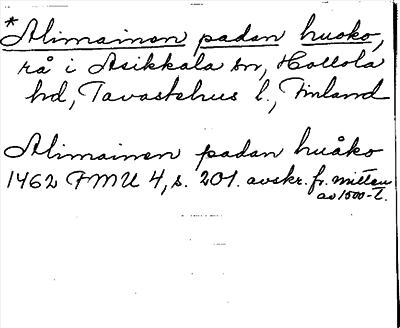 *Alimainon padan huoko,
rå i Asikkala sn, Hollola
hd, Tavastehus l., Finland
Alimainen padan huåko
1462 FMU 4, s. 201. avskr. fr. mitten
av 1500-t.